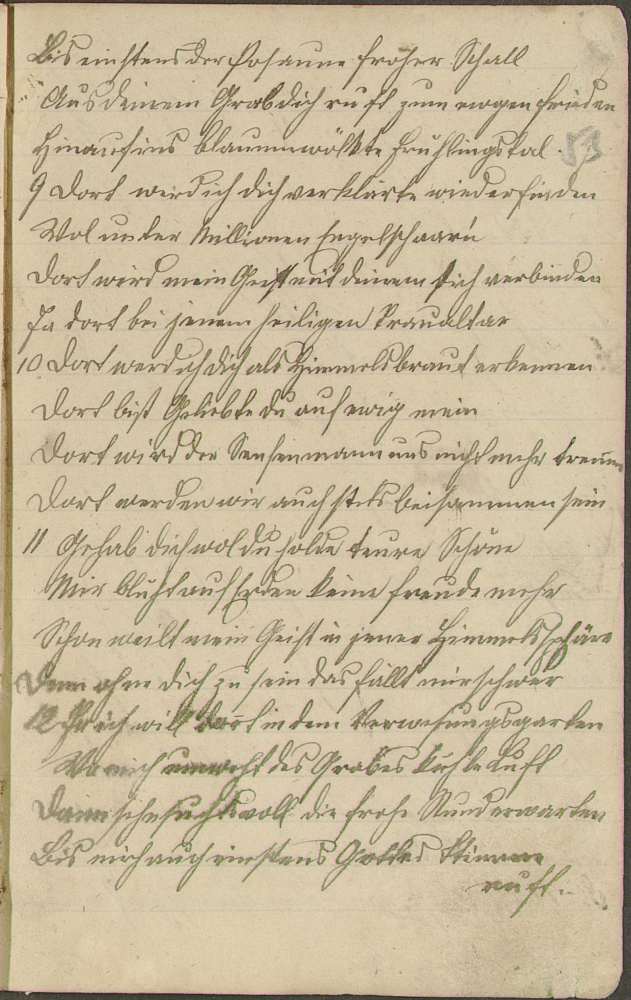 Bis einstens der Posaune froher Schall
Aus deinem Grab dich ruft zum ewgen Frieden
Hinauf ins blauumwölkte Frühlingstal
53
9 Dort werd ich dich verklärte wiederfinden
Wol unter Millionen Engelschaar'n
Dort wird mein Geist mit deinem sich verbinden
Ja dort bei jenem heiligen Traualtar
10 Dort werd ich dich als Himmelsbraut erkennen
Dort bist Geliebte du auf ewig mein
Dort wird der Sensenmann uns nicht mehr trennen
Dort werden wir auch stets beisammen sein
11 Gehab dich wol du holde teure Schöne
Mir blüht auf Erden keine Freude mehr
Schon weilt mein Geist in jener Himmelssphäre
Denn ohne dich zu sein das fällt mir schwer
12 ich will dort in dem Verwesungsgarten
Wo mich umweht des Grabes kühle Luft
Dann sehnsuchtsvoll die frohe Stund erwarten
Bis mich auch einstens Gottes Stimme
ruft.